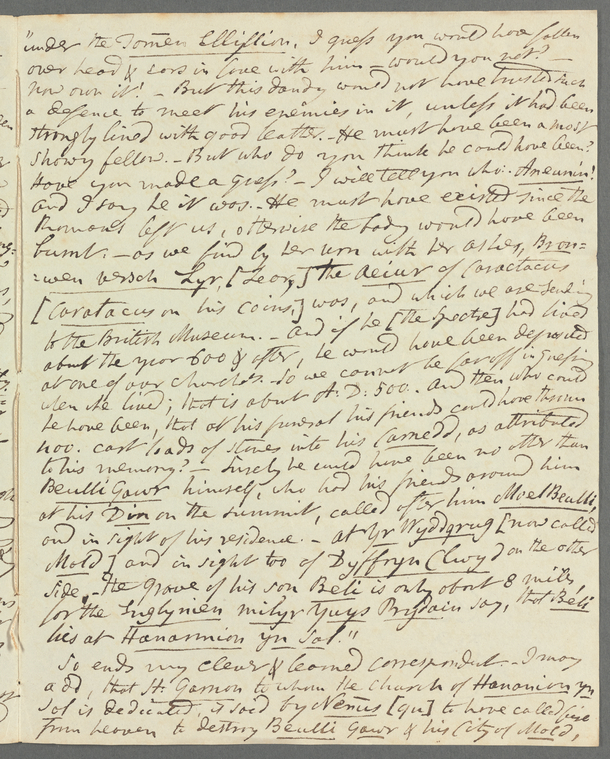 "under the Tomen Ellyllion, I guess you would have fallen
over head & ears in love with him – would you not? –
now own it! – But this dandy would not have trusted such
a defence to meet his enemies in it, unless it had been
strongly lined with good leather. – He must have been a most
showy fellow. – But who do you think he could have been?
Have you made a guess? – I will tell you who. – Aneurin!
and I say he it was. – He must have existed since the
Romans left us, otherwise the body would have been
burnt. – as we find by her urn with her ashes, Bron=
=wen versch Lyr, [Lear,] the aeiur of Caractacus
[Caratacus on his coins,] was, and which we are sending
to the British Museum. – And if he [the Spectre] had lived
about the year 600 & after, he would have been deposited
at one of our churches. So we cannot be far off in guessing
when he lived; that is about A: D: 500. And then who could
he have been, that at his funeral his friends could have thrown
400. cart loads of stones into his Carnedd, as attributed
to his memory? – Surely he could have been no other than
Beulli Gawr himself, who had his friends around him
at his Din on the summit, called after him Moel Beulli,
and in sight of his residence. – at Yr Wyddgrug [now called
Mold] and in sight too of Dyffryn Clwyd on the other
side. – He grave of his son Beli is only about 8 miles,
for the Englynion milyr Ynys Prydain say, that Beli
lies at Llanarmon yn Ial."
So ends my clever & learned correspondent. – I may
add, that St. Garmon to whom the Church of Llanarmon yn
Ial is dedicated, is said by Nenius [qu] to have called fire
from heaven to destroy Beulli Gawr & his City of Mold,